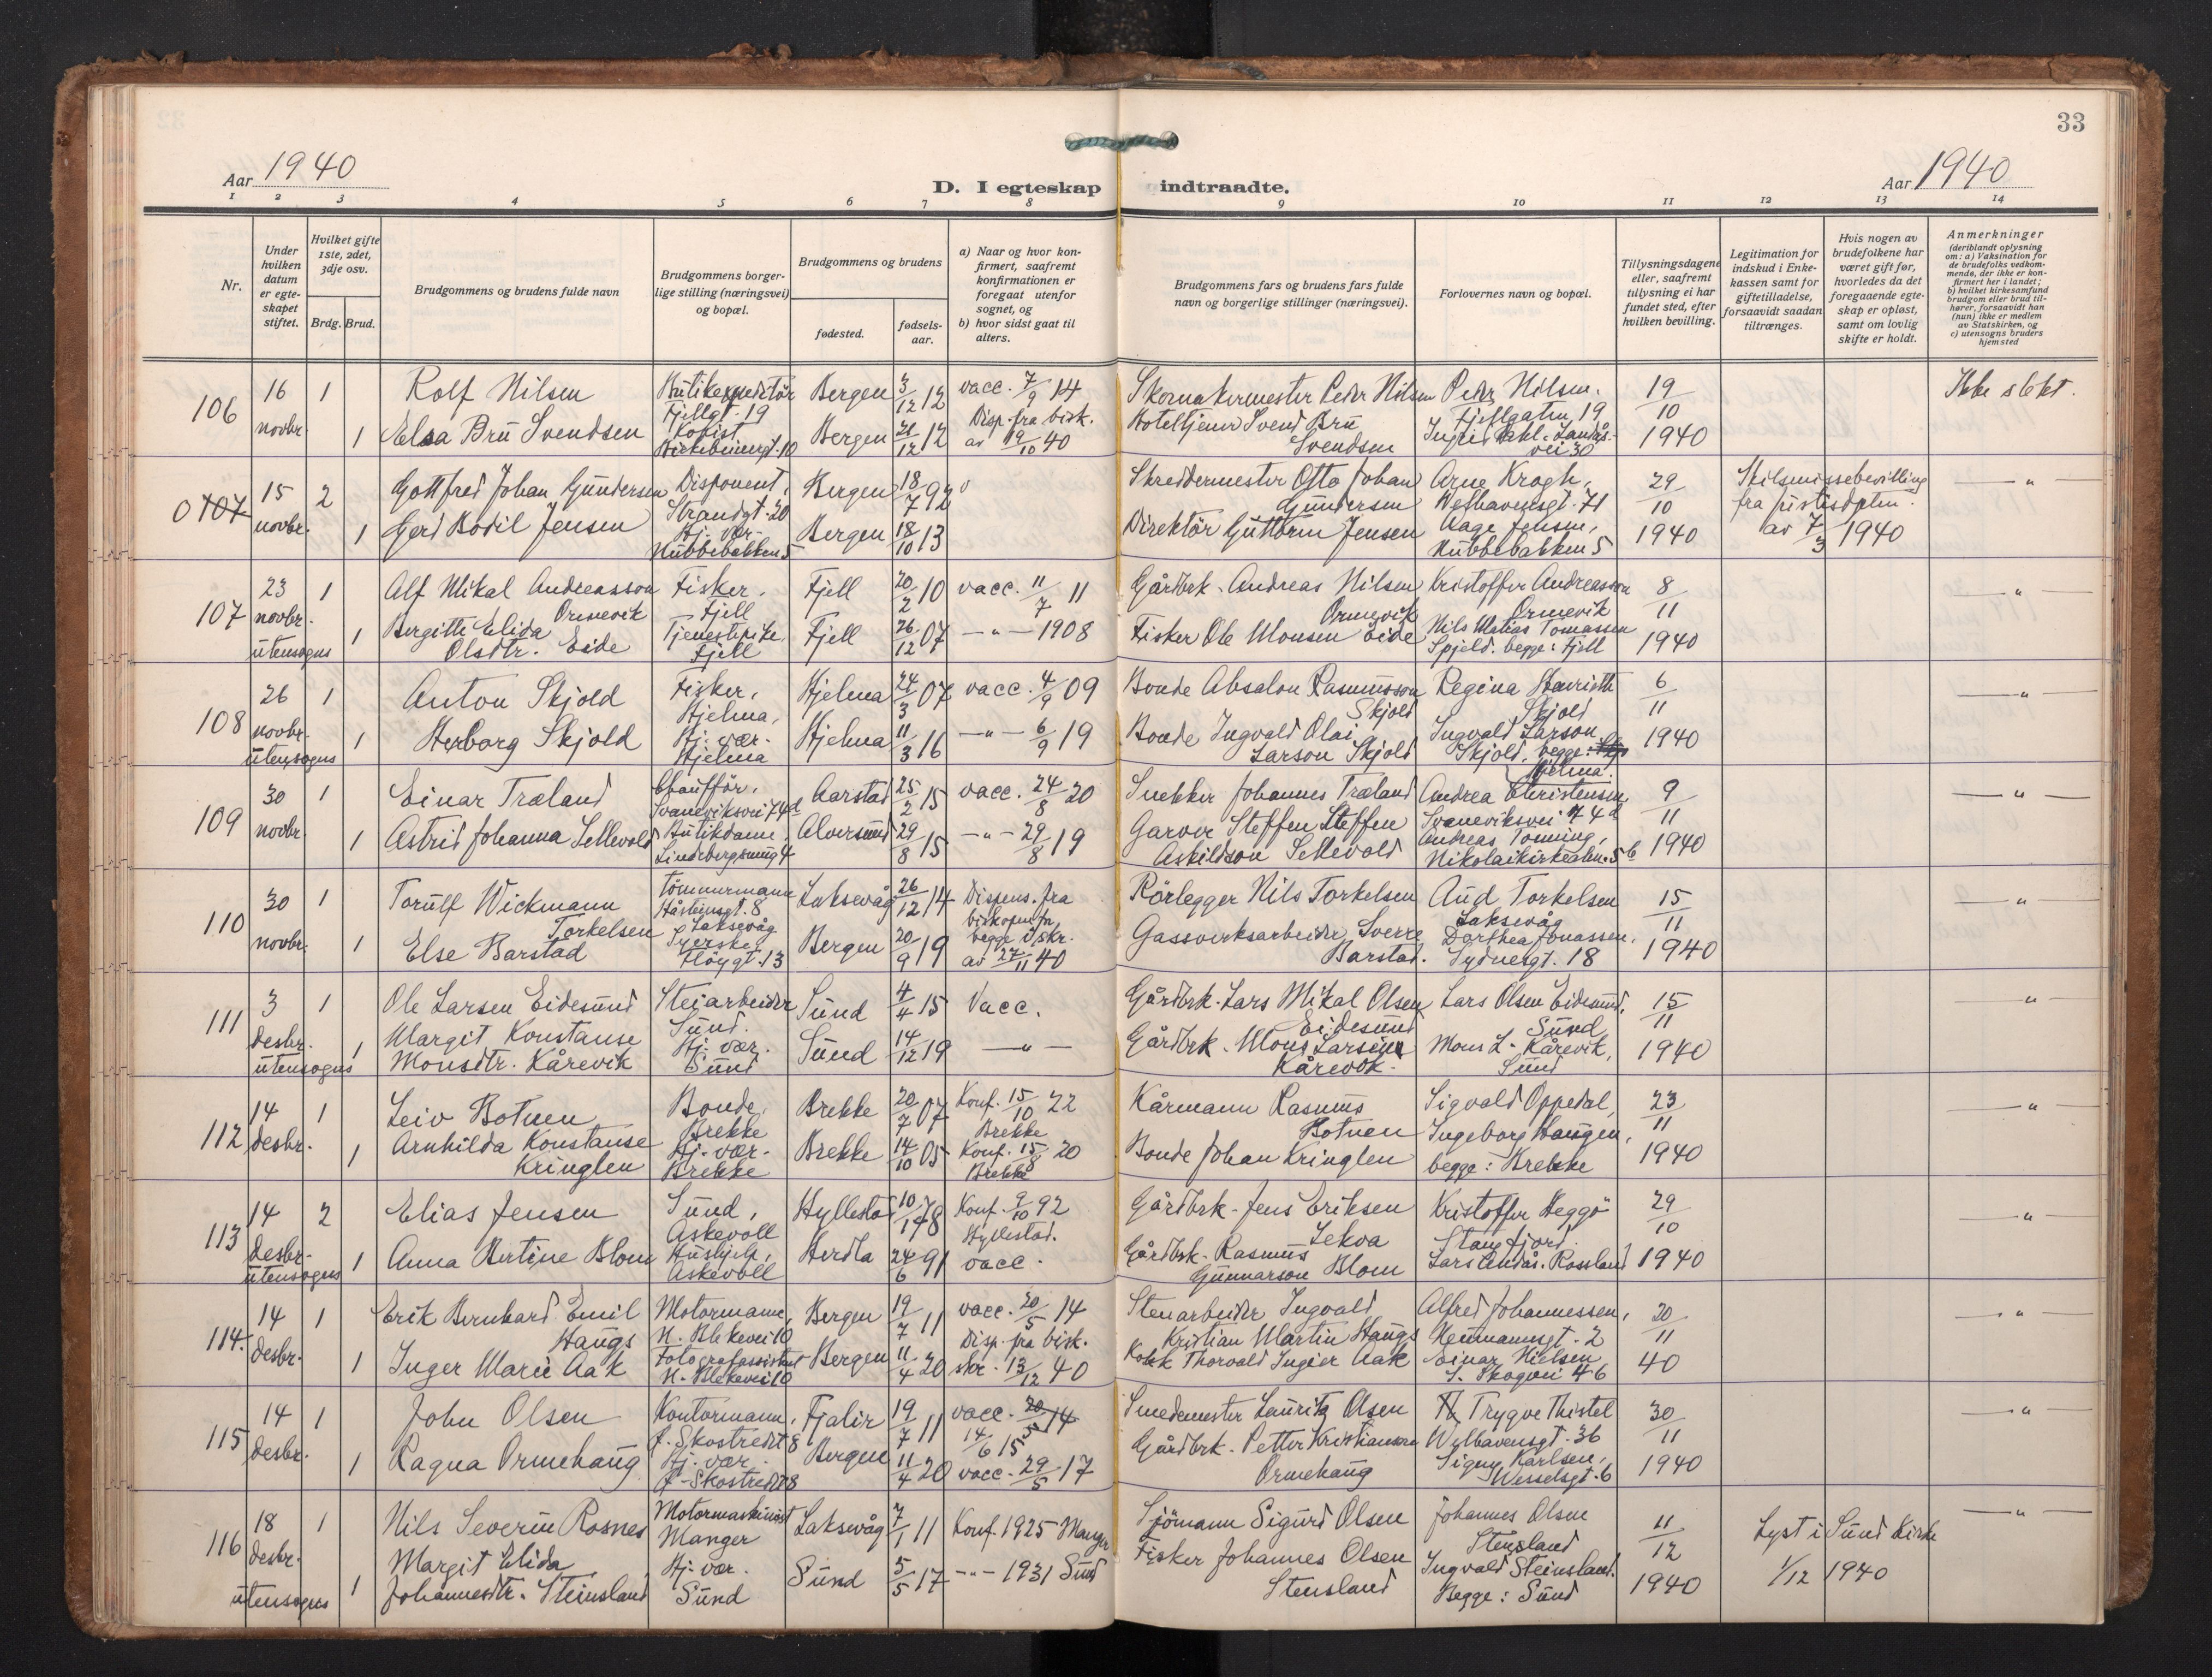 33
Aar 1940
D. I egteskap indtraadte.
Aar 1940
1 2 3 4 5 6 7 8 9 10 11 12 13 14
Nr.
Under hvilken datum er egteskapet stiftet.
Hvilket gifte 1ste, 2det, 3dje osv.
Brdg. Brud.
Brudgommens og brudens fulde navn
Brudgommens borgerlige stilling (næringsvei) og bopæl.
Brudgommens og brudens
fødested.
fødselsaar.
a) Naar og hvor konfirmert, saafremt konfirmationen er foregaat utenfor sognet, og
b) hvor sidst gaat til alters.
Brudgommens fars og brudens fars fulde navn og borgerlige stillinger (næringsvei).
Forlovernes navn og bopæl.
Tillysningsdagene eller, saafremt tillysning ei har fundet sted, efter hvilken bevilling.
Legitimation for indskud i Enkekassen samt for giftetilladelse, forsaavidt saadan tiltrænges.
Hvis nogen av brudefolkene har været gift før, hvorledes da det foregaaende egteskap er opløst, samt om lovlig skifte er holdt.
Anmerkninger
(deriblandt oplysning om: a) Vaksination for de brudefolks vedkommende, der ikke er konfirmert her i landet; b) hvilket kirkesamfund brudgom eller brud tilhører, forsaavidt han (hun) ikke er medlem av Statskirken, og c) utensogns bruders hjemsted
106 16 novbr. 1 Rolf Nilsen Butikexpeditör Fjellgt. 19 Bergen 3/12 12 vacc. 7/9 14 Skomakermester Peder Nilsen Peder Nilsen. Fjellgaten 19 19/10 1940 Ikke slekt.
1 Elsa Bru Svendsen Kobist Birkebeinergt. 10 Bergen 21/12 12 Disp. fra bisk. av 19/10 40 Hotelltjener Svend Bru Svendsen Ingrid Dahl. Landåsvei 30
0107 15 novbr. 2 Gottfred Johan Gundersen Disponent, Strandgt. 20 Bergen 18/7 92 Skreddermester Otto Johan Gundersen Arne Krogh, Welhavensgt. 71 29/10 1940 Skilsmissebevilling fra justisdptm. av 7/3 1940 — " —
1 Gerd Bodil Jensen Hj. vær. Kubbebakken 5 Bergen 18/10 13 Direktör Guttorm Jensen Aage Jensen, Kubbebakken 5
107 23 novbr. utensogns 1 Alf Mikal Andreasson Ormevik Fisker. Fjell Fjell 20/2 10 vacc. 11/7 11 Gårdbrk. Andreas Nilsen Ormevik Kristoffer Andreasson Ormevik 8/11 1940 — " —
1 Bergitte Elida Olsdtr. Eide Tjenestepike. Fjell Fjell 26/12 07 — " — 1908 Fisker Ole Monsen Eide Nils Matias Tomassen Spjeld. begge: Fjell
108 26 novbr. utensogns 1 Anton Skjold Fisker, Hjelma, Hjelma 24/3 07 vacc. 4/9 09 Bonde Absalon Rasmusson Skjold Regina Henriette Skjold 6/11 1940 — " —
1 Herborg Skjold Hj. vær. Hjelma Hjelma 11/3 16 — " — 6/9 19 Bonde Ingvald Olai Larson Skjold Ingvald Larson Skjold, begge: Hjelma.
109 30 novbr. 1 Einar Træland Chaufför, Svaneviksvei 74d Aarstad 25/2 15 vacc. 24/8 20 Snekker Johannes Træland Andrea Christensen, Svaneviksvei 74d 9/11 1940 — " —
1 Astrid Johanna Sellevold Butikdame Lindebergsmug 4 Alversund 29/8 15 — " — 29/8 19 Garver Steffen Steffen Askildson Sellevold Andreas Tonning, Nikolaikirkealm. 5b
110 30 novbr. 1 Torulf Wickmann Torkelsen Tömmermann Håsteinsgt. 8 Laksevåg Laksevåg 26/12 14 Dispens. fra biskopen for begge i skr. av 27/11 40 Rörlegger Nils Torkelsen Aud Torkelsen Laksevåg 15/11 1940 — " —
1 Else Barstad Syerske, Höygt. 13 Bergen 20/9 19 Gassverksarbeider Sverre Barstad. Dorthea Jonassen, Sydnesgt. 18
111 3 desbr. utensogns 1 Ole Larsen Eidesund Steiarbeider Sund. Sund 4/4 15 Vacc. Gårdbrk. Lars Mikal Olsen Eidesund Lars Olsen Eidesund, Sund 15/11 1940 " —
1 Margit Konstanse Monsdtr. Kårevik Hj. vær. Sund Sund 14/12 19 — " — Gårdbrk. Mons Larsen Kårevik. Mons L. Kårevik, Sund
112 14 desbr. 1 Leiv Botnen Bonde, Brekke Brekke 20/7 07 Konf. 15/10 22 Brekke Kårmann Rasmus Botnen Sigvald Oppedal, 23/11 1940 — " —
1 Arnhilda Konstanse Kringlen Hj. vær. Brekke Brekke 14/10 05 Konf. 15/8 20 Brekke Bonde Johan Kringlen Ingeborg Haugen, begge: Brekke
113 14 desbr. utensogns 2 Elias Jensen Sund, Askevoll Hyllestad 10/1 78 Konf. 9/10 92 Hyllestad. Gårdbrk. Jens Eriksen Lekva Kristoffer Heggö Stangfjord. 29/10 1940 — " —
1 Anna Bertine Blom Hushjelp, Askevoll Herdla 24/6 91 vacc. Gårdbrk. Rasmus Gunnarson Blom Lars Andås. Rossland
114. 14 desbr. 1 Erik Bernhard Emil Haugs Motormann, N. Blekevei 10 Bergen 19/7 11 vacc. 20/5 14 Stenarbeider Ingvald Kristian Martin Haugs Alfred Johannessen, Neumannsgt. 2 20/11 40 — " —
1 Inger Marie Aak Fotografassistent N. Blekevei 10 Bergen 11/4 20 Disp. fra bisk. skr. 13/12 40 Kokk Thorvald Ingier Aak Einar Nielsen S. Skogvei 46
115 14 desbr. 1 John Olsen Kontormann, Ö. Skostredet 8 Fjalir 19/7 11 vacc. 20/5 14 14/6 15 Smedemester Lauritz Olsen Trygve Thistel Welhavensgt. 36 30/11 1940 — " —
1 Ragna Ormehaug Hj. vær. Ö. Skostredet 8 Bergen 11/4 20 vacc. 29/5 17 Gårdbrk. Petter Kristianson Ormehaug Signy Karlsen, Wesselsgt. 6
116 18 desbr. utensogns 1 Nils Severin Rosnes Motormaskinist Manger Laksevåg 7/1 11 Konf. 1925 Manger Sjömann Sigurd Olsen Johannes Olsen Stensland 11/12 1940 Lyst i Sund Kirke 1/12 1940 — " —
1 Margit Elida Johannesdtr. Steinsland Hj. vær. Sund Sund 5/5 17 — " — 1931 Sund Fisker Johannes Olsen Stensland Ingvald Steinsland. Begge: Sund